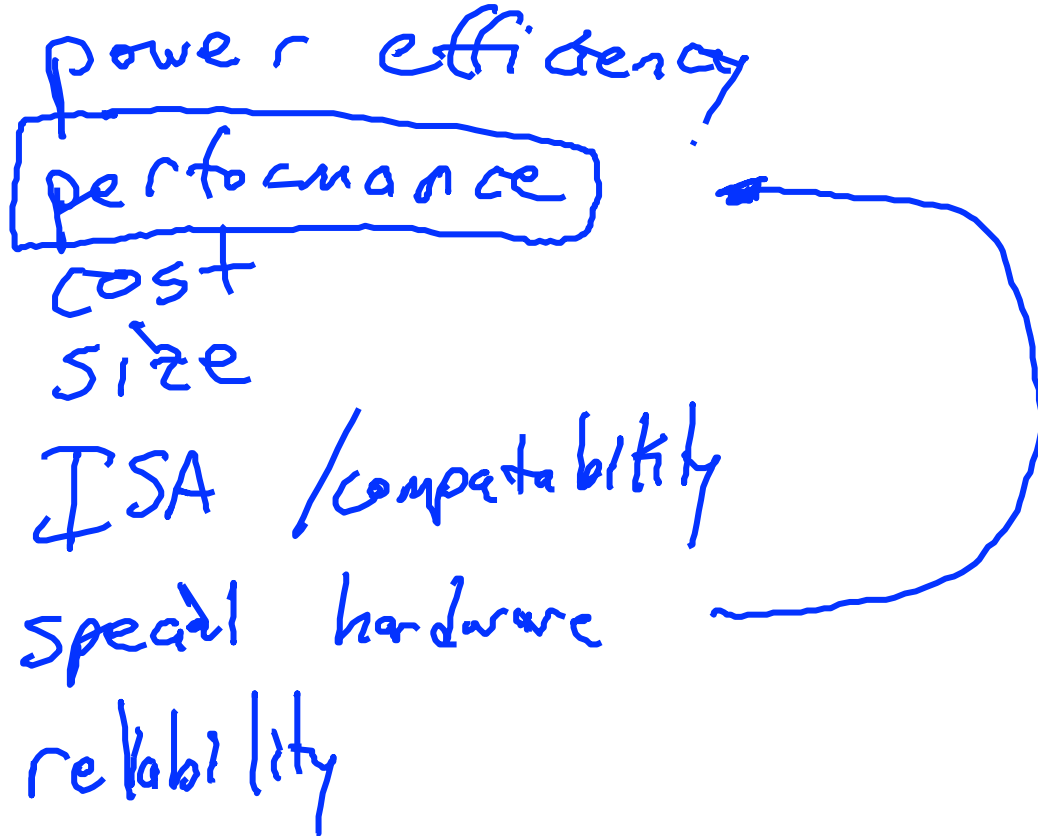 power efficiency
performance
cost
size
ISA /compatability
special hardware
reliability